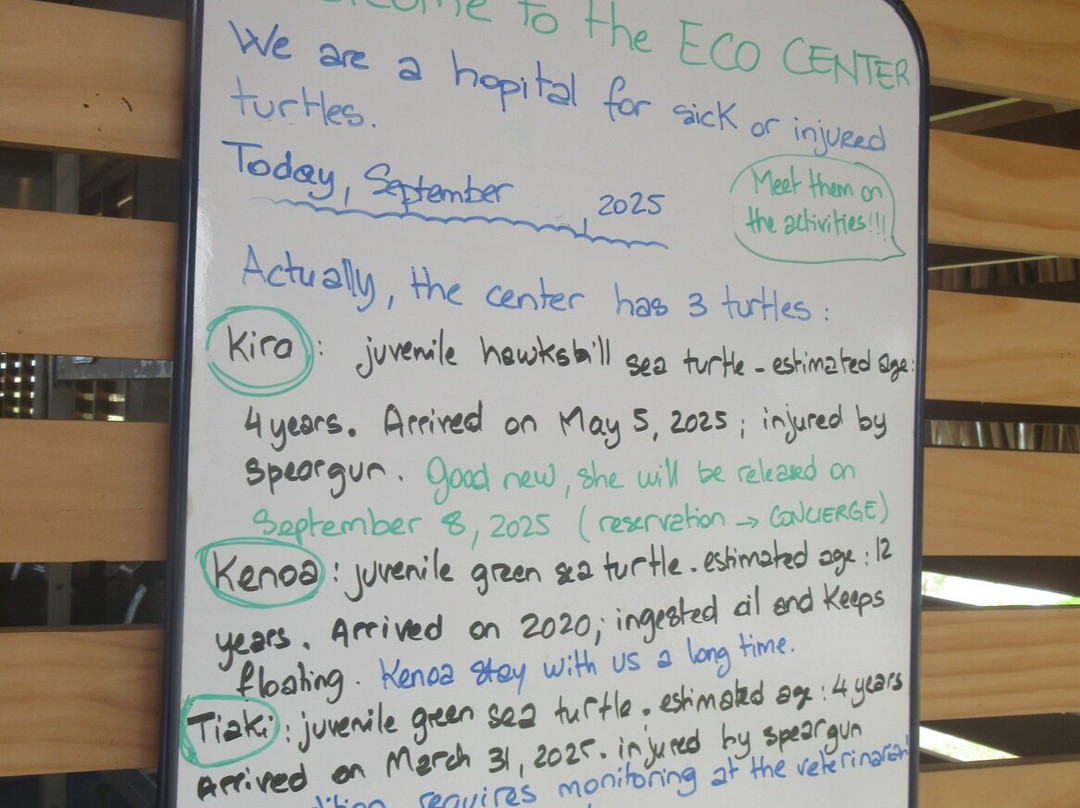 to the ECO CENTER
We are a hopital for sick or injured
turtles.
Today, September , 2025
Meet them on
the activities!!!
Actually, the center has 3 turtles :
Kira : juvenile hawksbill sea turtle - estimated age:
4 years. Arrived on May 5, 2025 ; injured by
speargun. Good new, she will be released on
September 8, 2025 (reservation → CONCIERGE)
Kenoa : juvenile green sea turtle. estimated age : 12
years. Arrived on 2020; ingested oil and keeps
floating. Kenoa stay with us a long time.
Tiaki : juvenile green sea turtle. estimated age : 4 years
Arrived on March 31, 2025. injured by speargun
requires monitoring at the veterinarian